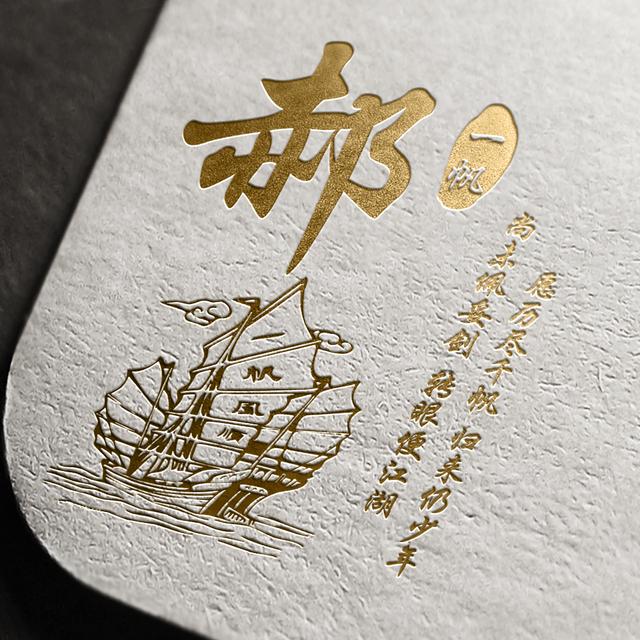 郝
一帆
尚未佩妥剑 转眼便江湖
愿历尽千帆 归来仍少年
一帆風順